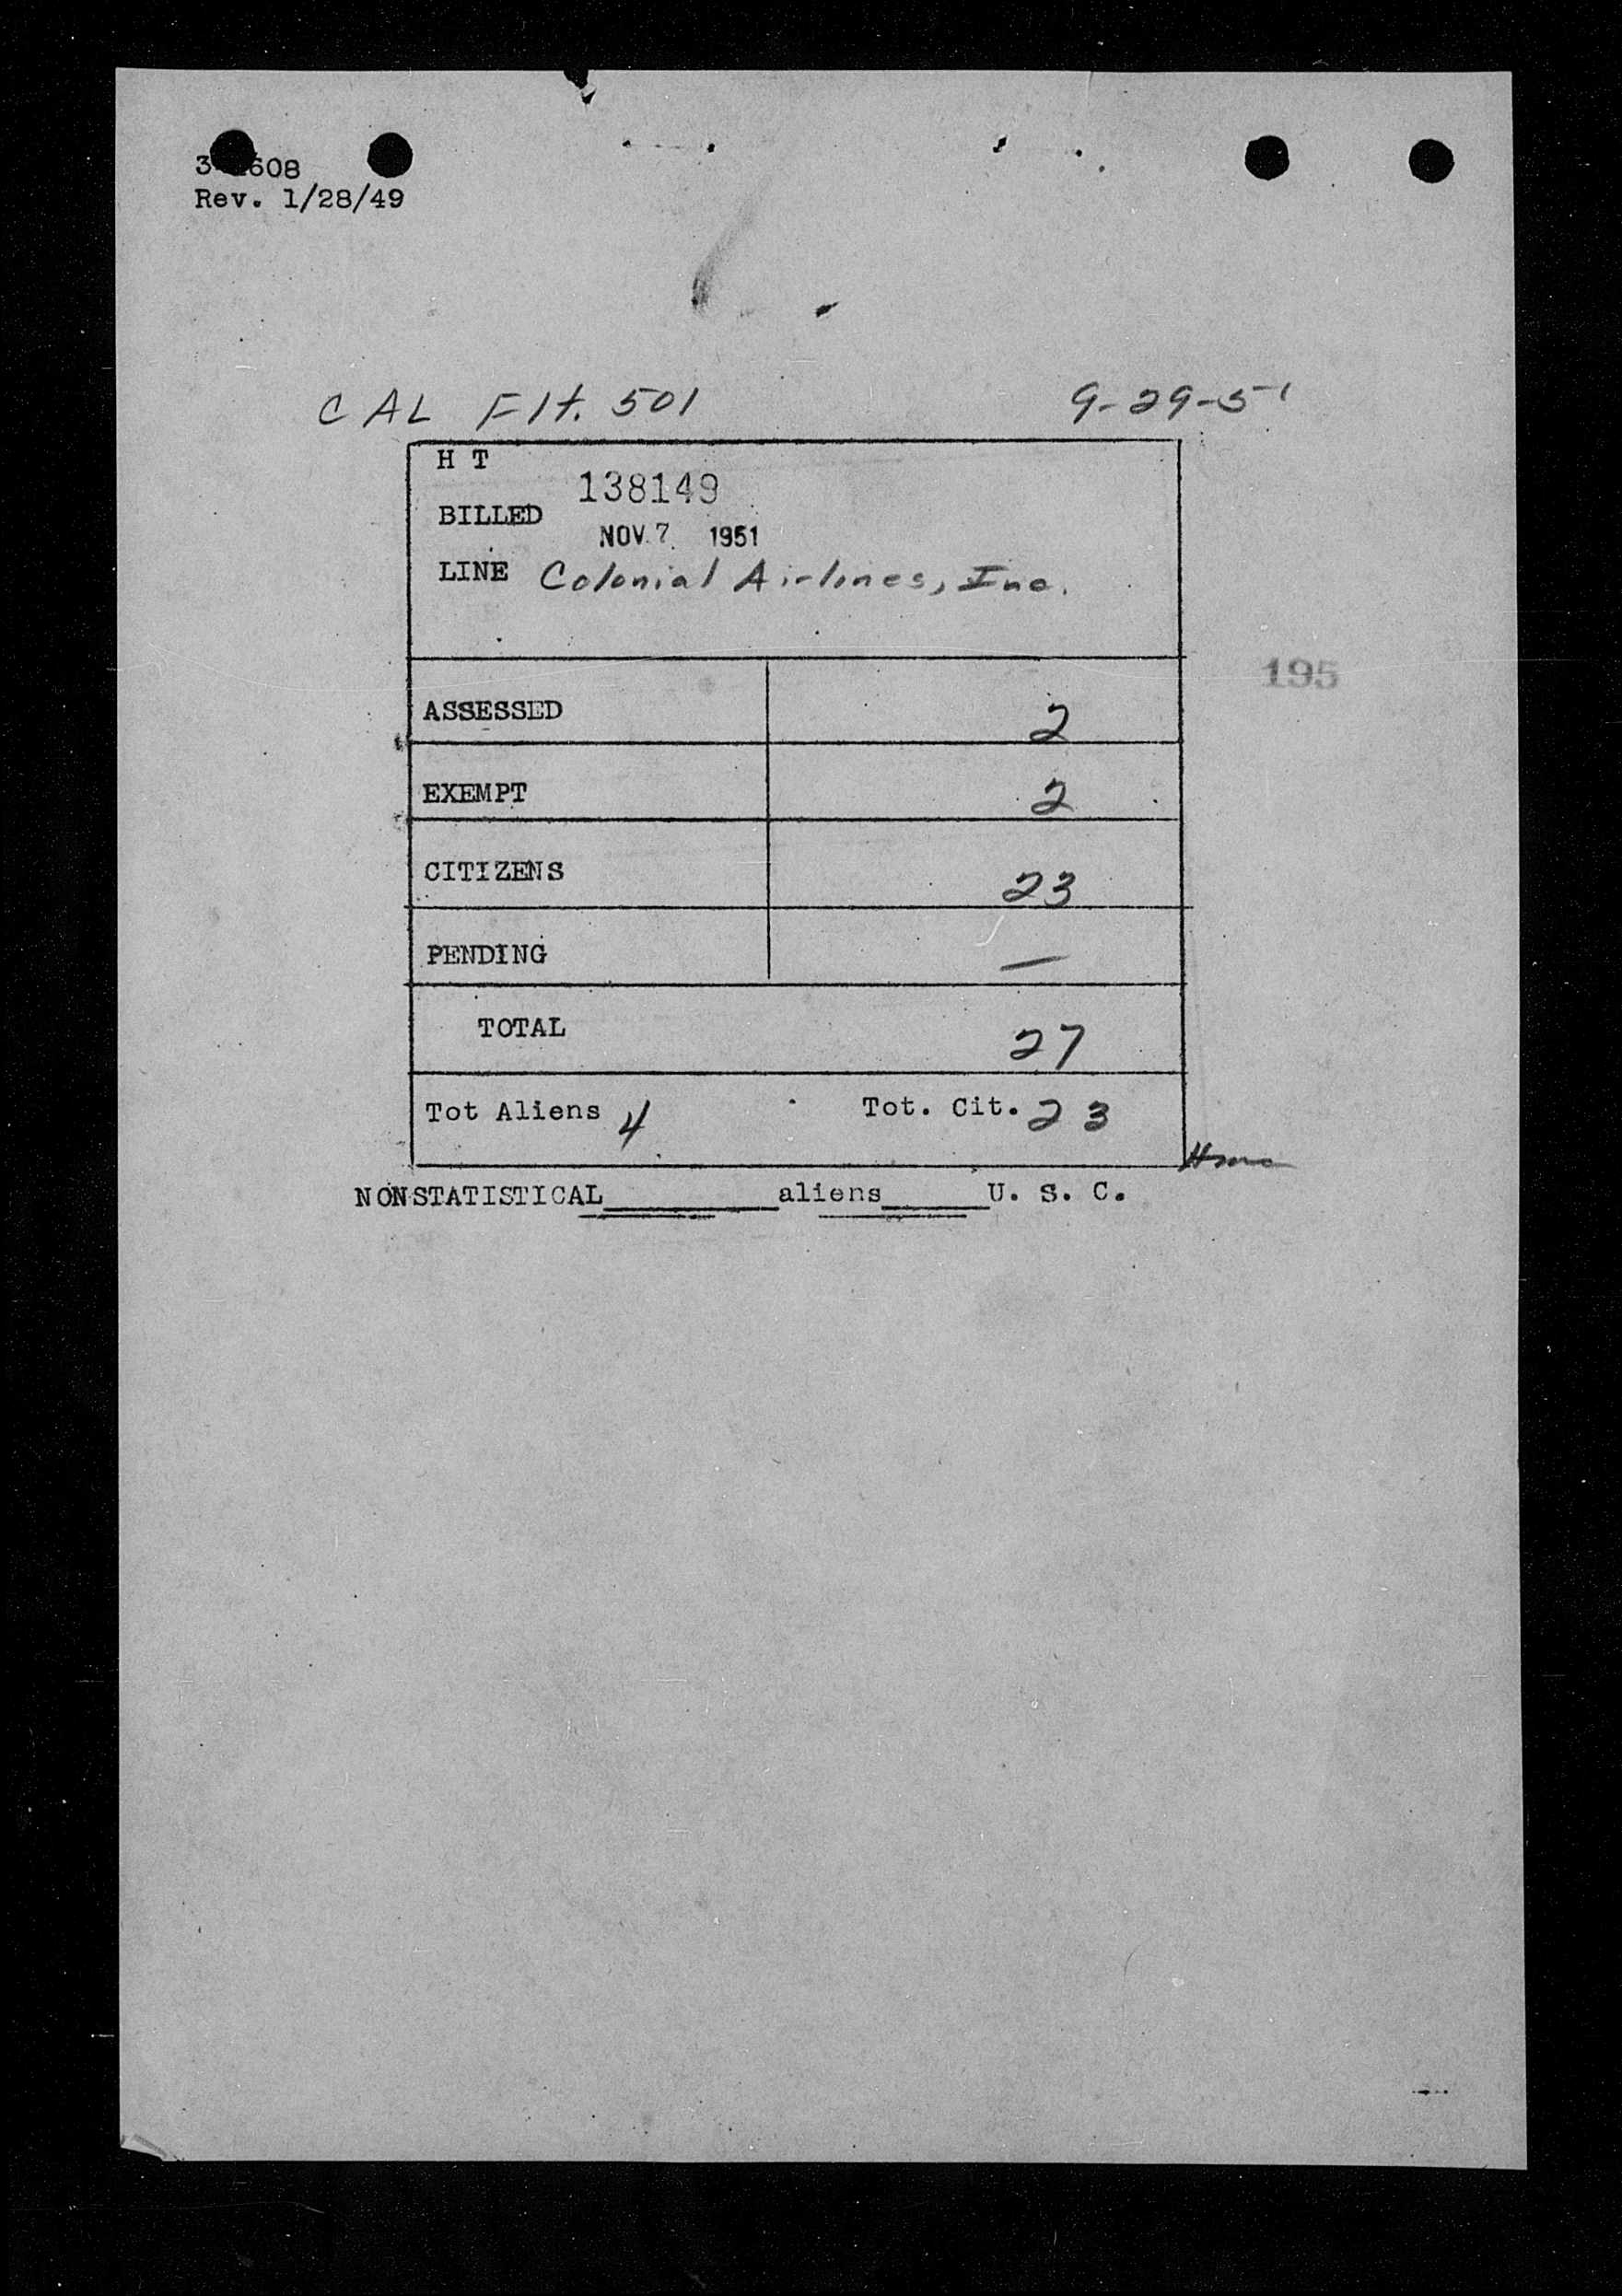 608
Rev. 1/28/49
CAL Flt. 501 9-29-51
H T
138149
BILLED
NOV. 7 1951
LINE Colonial Airlines, Inc.
195
ASSESSED 2
EXEMPT 2
CITIZENS 23
PENDING —
TOTAL 27
Tot Aliens 4 Tot. Cit. 23
NONSTATISTICAL______aliens______U. S. C.